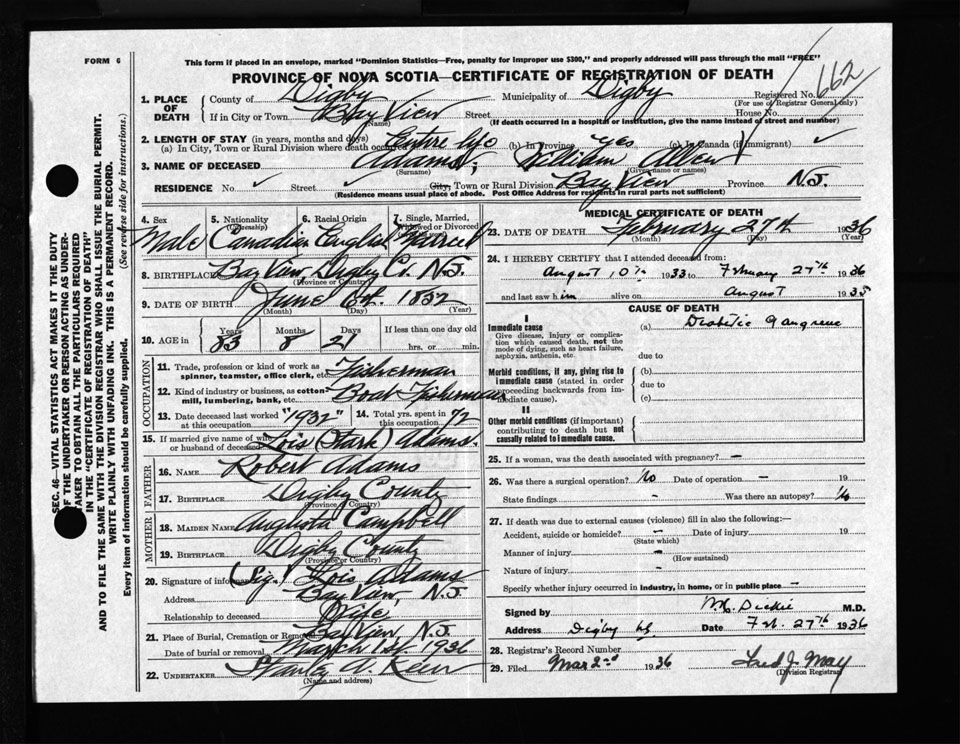 FORM 6
This form if placed in an envelope, marked "Dominion Statistics—Free, penalty for improper use $300," and properly addressed will pass through the mail "FREE"
PROVINCE OF NOVA SCOTIA—CERTIFICATE OF REGISTRATION OF DEATH
662
1. PLACE OF DEATH { County of Digby Municipality of Digby Registered No.
(For use of Registrar General only)
If in City or Town Bay View Street House No.
(Name) (If death occurred in a hospital or institution, give the name instead of street and number)
2. LENGTH OF STAY (in years, months and days)
(a) In City, Town or Rural Division where death occurred Entire life (b) In Province yes (c) In Canada (if immigrant) ✓
3. NAME OF DECEASED Adams, William Allen
(Surname) (Given name or names)
RESIDENCE No. ✓ Street ✓ City, Town or Rural Division Bay View Province N.S.
(Residence means usual place of abode. Post Office Address for residents in rural parts not sufficient)
SEC. 46—VITAL STATISTICS ACT MAKES IT THE DUTY
OF THE UNDERTAKER OR PERSON ACTING AS UNDER-
TAKER TO OBTAIN ALL THE PARTICULARS REQUIRED
IN THE "CERTIFICATE OF REGISTRATION OF DEATH"
AND TO FILE THE SAME WITH THE DIVISION REGISTRAR WHO SHALL ISSUE THE BURIAL PERMIT.
WRITE PLAINLY WITH UNFADING INK. THIS IS A PERMANENT RECORD.
Every item of information should be carefully supplied.
(See reverse side for instructions.)
4. Sex 5. Nationality (Citizenship) 6. Racial Origin 7. Single, Married, Widowed or Divorced
Male Canadian English Married
8. BIRTHPLACE Bay View, Digby Co. N.S.
(Province or Country)
9. DATE OF BIRTH June 6th 1852
(Month) (Day) (Year)
10. AGE in Years Months Days If less than one day old
83 8 21 hrs. or min.
OCCUPATION
11. Trade, profession or kind of work as spinner, teamster, office clerk, etc. Fisherman
12. Kind of industry or business, as cotton-mill, lumbering, bank, etc. Boat Fisherman
13. Date deceased last worked at this occupation "1932" 14. Total yrs. spent in this occupation 72
15. If married give name of wife or husband of deceased Lois (Stark) Adams.
FATHER
16. NAME Robert Adams
17. BIRTHPLACE Digby County
(Province or Country)
MOTHER
18. MAIDEN NAME Augusta Campbell
19. BIRTHPLACE Digby County
(Province or Country)
20. Signature of informant (Sig.) Lois Adams
Address Bay View, N.S.
Relationship to deceased Wife
21. Place of Burial, Cremation or Removal Bay View, N.S.
Date of burial or removal March 1st. 1936
22. UNDERTAKER Stanley A.
(Name and address)
MEDICAL CERTIFICATE OF DEATH
23. DATE OF DEATH February 27th 1936
(Month) (Day) (Year)
24. I HEREBY CERTIFY that I attended deceased from:
August 10th 1933 to February 27th 1936
and last saw him alive on August 1935
CAUSE OF DEATH
I
Immediate cause (a) Diabetic gangrene
Give disease, injury or complication which caused death, not the mode of dying, such as heart failure, asphyxia, asthenia, etc.
due to
Morbid conditions, if any, giving rise to immediate cause (stated in order proceeding backwards from immediate cause). (b)
due to
(c)
II
Other morbid conditions (if important) contributing to death but not causally related to immediate cause.
25. If a woman, was the death associated with pregnancy? —
26. Was there a surgical operation? No Date of operation — 19
State findings - Was there an autopsy? No
27. If death was due to external causes (violence) fill in also the following:—
Accident, suicide or homicide? — Date of injury 19
(State which)
Manner of injury —
(How sustained)
Nature of injury —
Specify whether injury occurred in industry, in home, or in public place —
Signed by Dickie M.D.
Address Digby NS Date Feb. 27th 1936
28. Registrar's Record Number
29. Filed Mar 2nd 1936 Fred J. May
(Division Registrar)